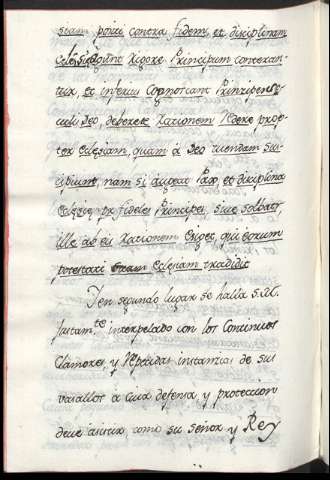 stiam, ponit contra fidem, et disciplinam
Eclesię agunt rigore Principum conteran-
tur, et inferius Cognoscant Principes Se-
culi Deo, debere rationem redere prop-
ter Eclesiam, quam á Deo tuendam sus-
cipiunt, nam si augeat Pax, et disciplina
Eclesię pr fideles Principes, siue solbatr,
ille ab eis rationem exiget, qui eorum
potestati suam Eclesiam tradidit
Y en segundo lugar se halla S. M.
justam.te interpelado con los Continuos
Clamores, y repetidas instancias de sus
vasallos á cuia defensa, y proteccion
deue asistir, como su Señor y Rey